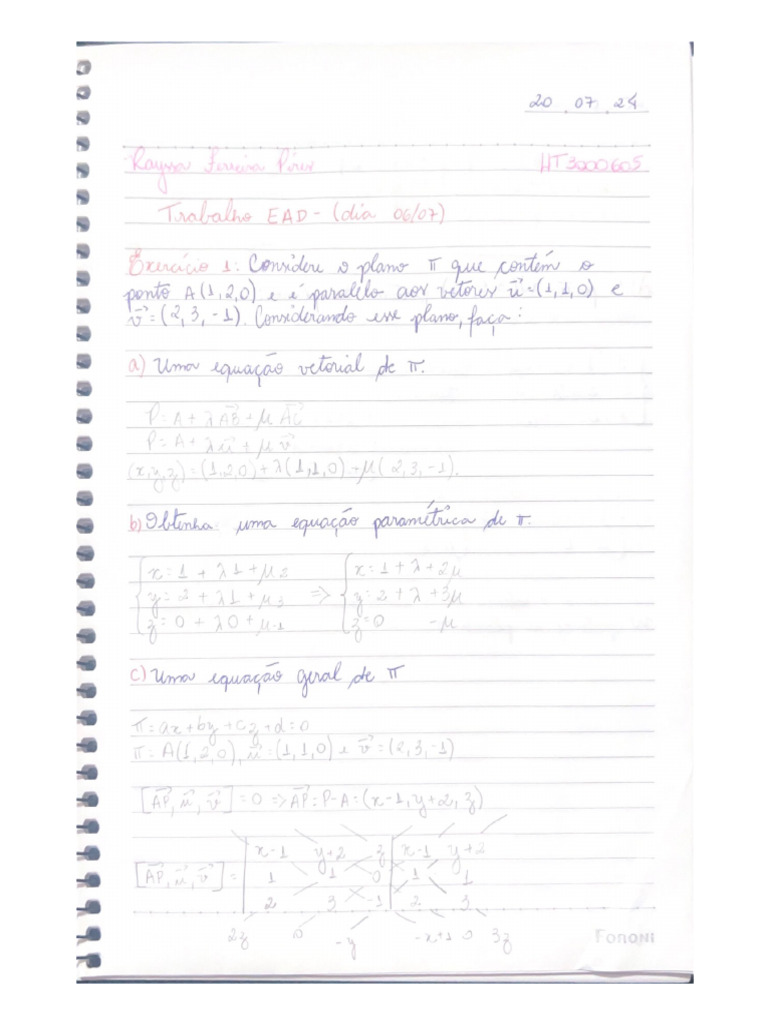 20 . 07 . 24
Rayssa Ferreira Pires HT3000605
Trabalho EAD - (dia 06/07)
Exercício 1: Considere o plano π que contém o
ponto A(1,2,0) e é paralelo aos vetores u⃗=(1,1,0) e
v⃗=(2,3,-1). Considerando esse plano, faça:
a) Uma equação vetorial de π.
P=A+λAB⃗+μAC⃗
P=A+λu⃗+μv⃗
(x,y,z)=(1,2,0)+λ(1,1,0)+μ(2,3,-1).
b) Obtenha uma equação paramétrica de π.
{x=1+λ1+μ2 {x=1+λ+2μ
{y=2+λ1+μ3 => {y=2+λ+3μ
{z=0+λ0+μ-1 {z=0 -μ
c) Uma equação geral de π
π=ax+by+cz+d=0
π=A(1,2,0), u⃗=(1,1,0) e v⃗=(2,3,-1)
[AP⃗,u⃗,v⃗]=0=>AP⃗=P-A=(x-1,y+2,z)
| x-1 y+2 z | x-1 y+2
[AP⃗,u⃗,v⃗]= | 1 1 0 | 1 1
| 2 3 -1 | 2 3
2z 0 -y -x+1 0 3z
Foroni